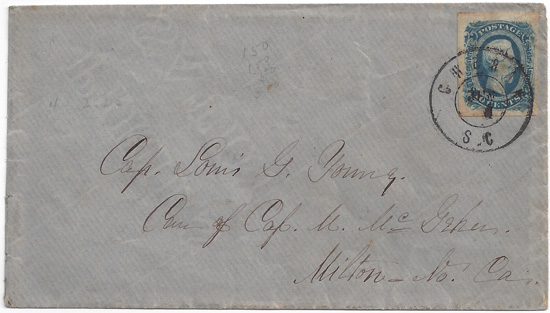 150
POSTAGE
CHER
TEN CENTS
S.C
Cap. Louis G. Young.
Care of Cap. M. McGehee.
Milton – No. Ca.